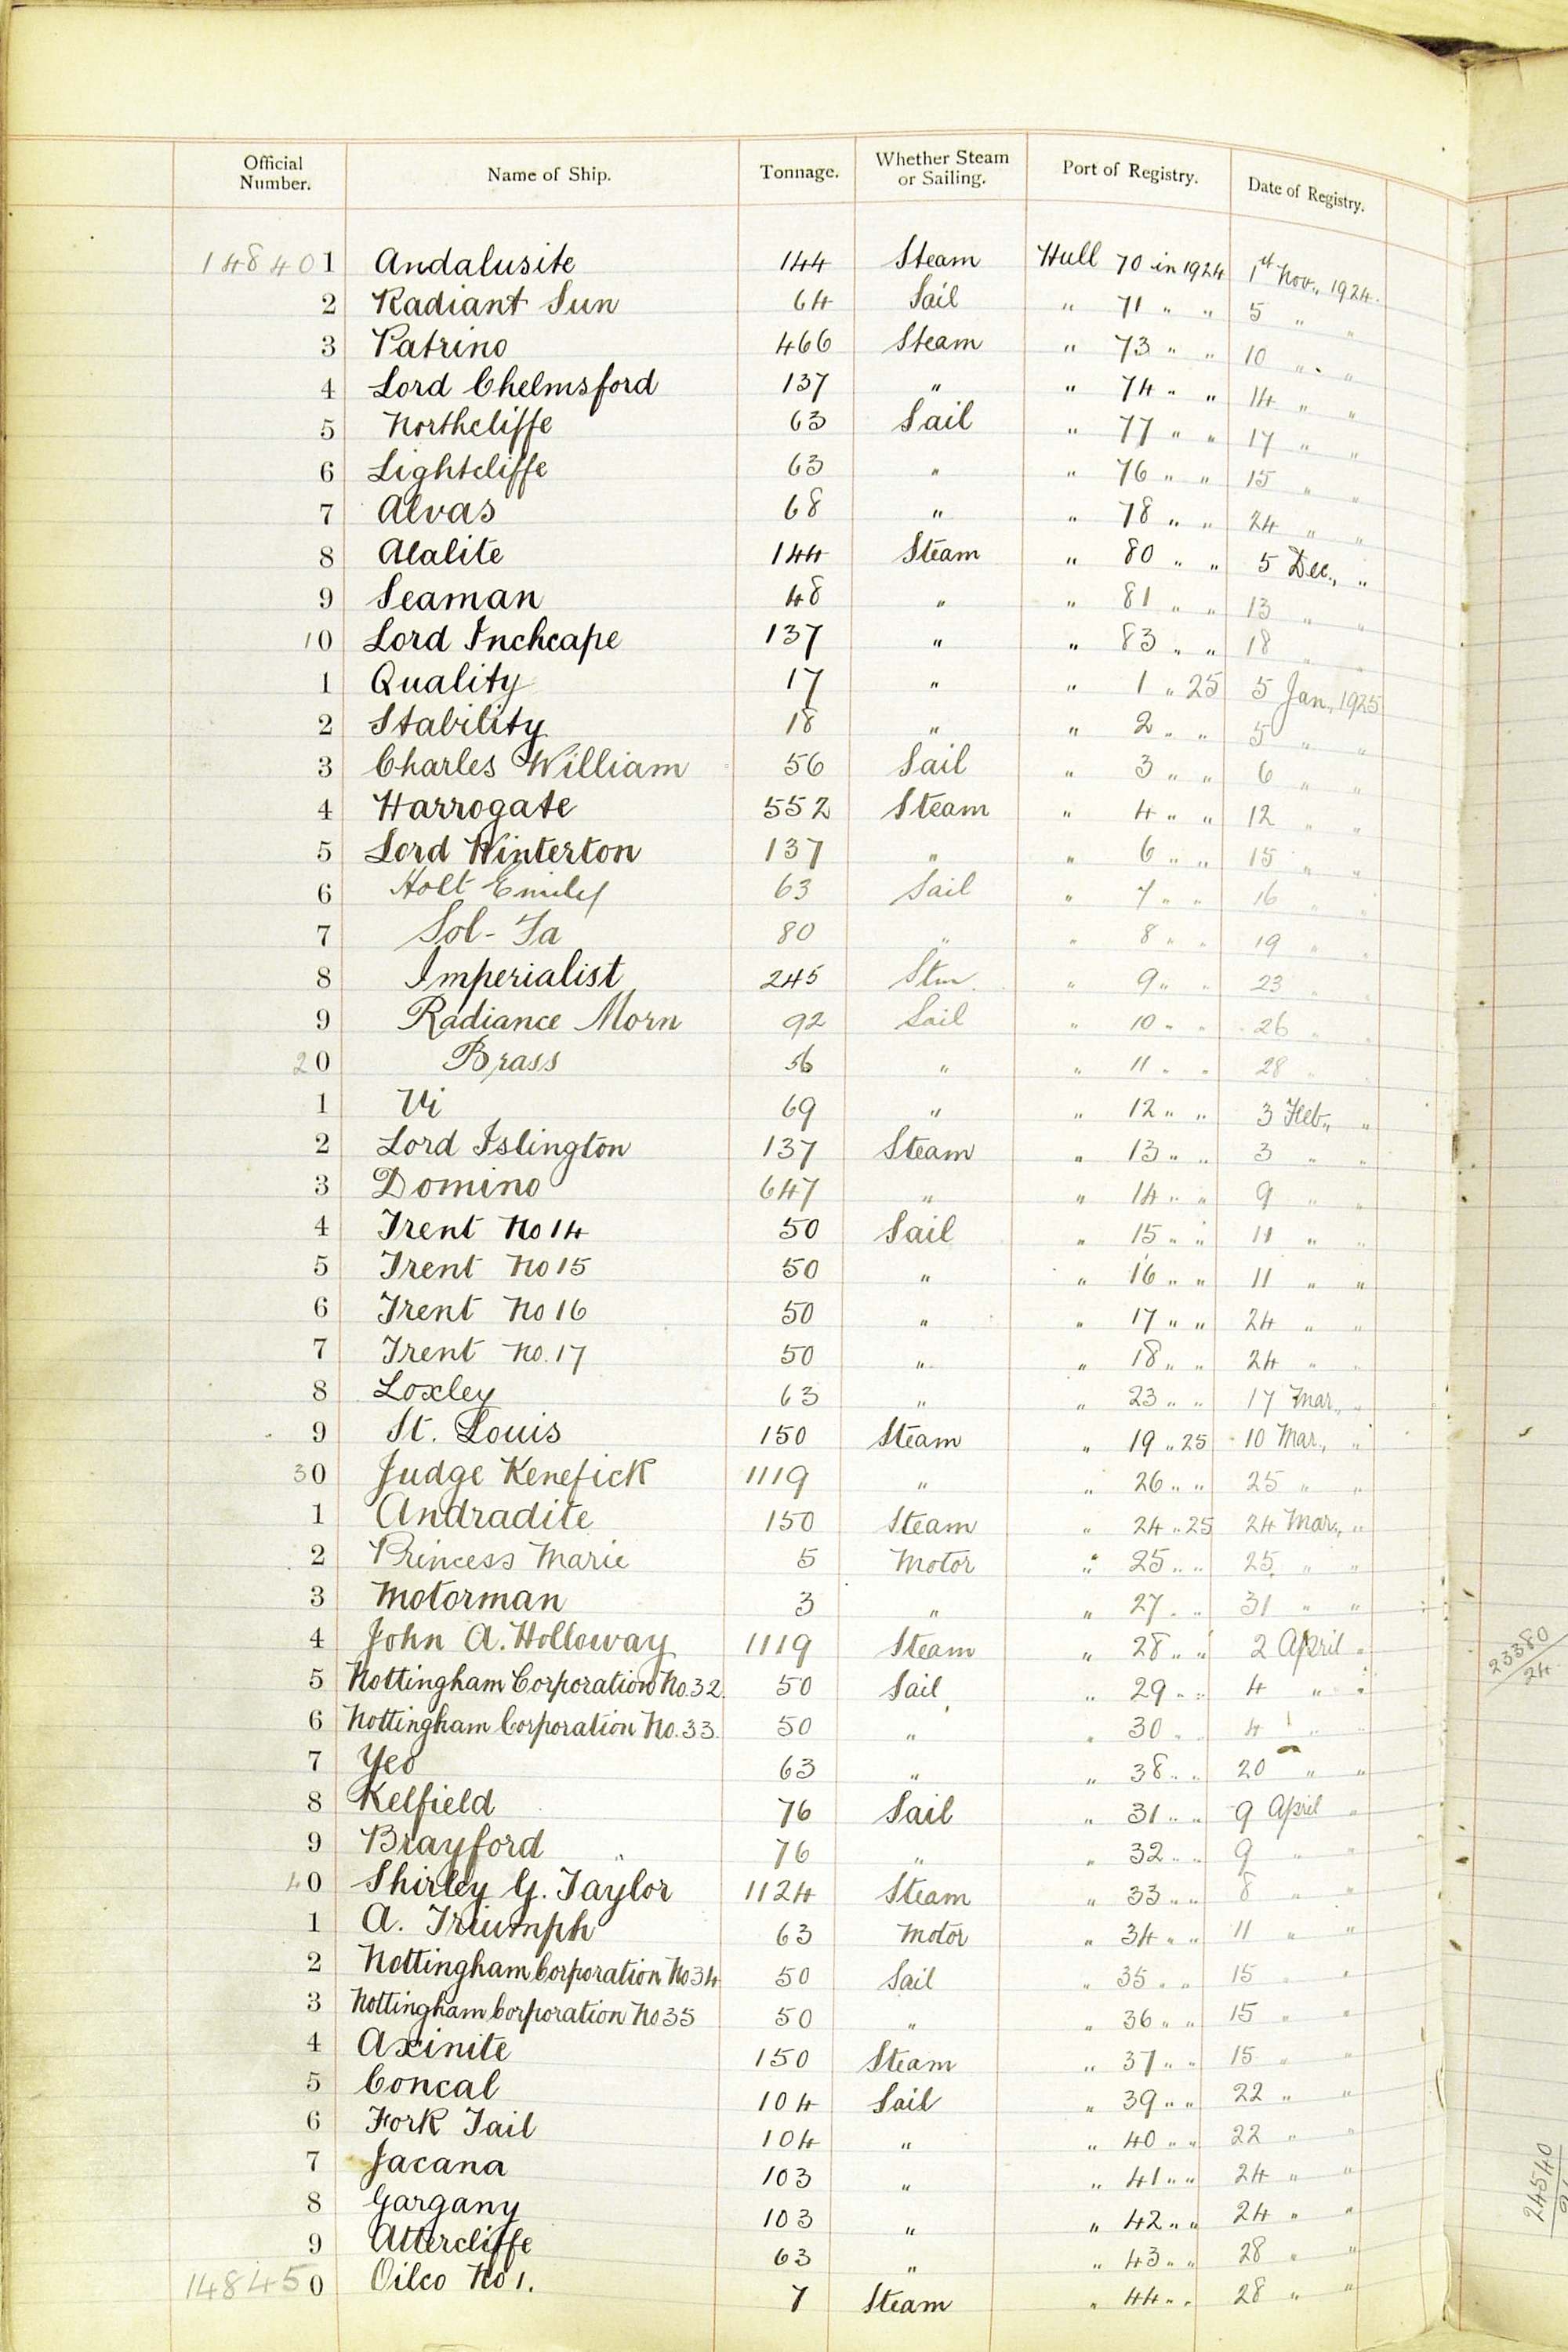 Official Number. Name of Ship. Tonnage. Whether Steam or Sailing. Port of Registry. Date of Registry.
148401 Andalusite 144 Steam Hull 70 in 1924 1st Nov., 1924.
2 Radiant Sun 64 Sail " 71 " " 5 " "
3 Patrino 466 Steam " 73 " " 10 " "
4 Lord Chelmsford 137 " " 74 " " 14 " "
5 Northcliffe 63 Sail " 77 " " 17 " "
6 Lightcliffe 63 " " 76 " " 15 " "
7 Alvas 68 " " 78 " " 24 " "
8 Alalite 144 Steam " 80 " " 5 Dec., "
9 Seaman 48 " " 81 " " 13 " "
10 Lord Inchcape 137 " " 83 " " 18 " "
1 Quality 17 " " 1 " 25 5 Jan, 1925
2 Stability 18 " " 2 " " 5 " "
3 Charles William 56 Sail " 3 " " 6 " "
4 Harrogate 552 Steam " 4 " " 12 " "
5 Lord Winterton 137 " " 6 " " 15 " "
6 Holt Emily 63 Sail " 7 " " 16 " "
7 Sol-Fa 80 " " 8 " " 19 " "
8 Imperialist 245 Stm. " 9 " " 23 " "
9 Radiance Morn 92 Sail " 10 " " 26 " "
20 Brass 56 " " 11 " " 28 " "
1 Vi 69 " " 12 " " 3 Feb., "
2 Lord Islington 137 Steam " 13 " " 3 " "
3 Domino 647 " " 14 " " 9 " "
4 Trent No 14 50 Sail " 15 " " 11 " "
5 Trent No 15 50 " " 16 " " 11 " "
6 Trent No 16 50 " " 17 " " 24 " "
7 Trent No. 17 50 " " 18 " " 24 " "
8 Loxley 63 " " 23 " " 17 Mar., "
9 St. Louis 150 Steam " 19 " 25 10 Mar., "
30 Judge Kenefick 1119 " " 26 " " 25 " "
1 Andradite 150 Steam " 24 " 25 24 Mar., "
2 Princess Marie 5 Motor " 25 " " 25 " "
3 Motorman 3 " " 27 " " 31 " "
4 John A. Holloway 1119 Steam " 28 " " 2 April "
5 Nottingham Corporation No. 32. 50 Sail " 29 " " 4 " "
6 Nottingham Corporation No. 33. 50 " " 30 " " 4 " "
7 Yeo 63 " " 38 " " 20 " "
8 Kelfield 76 Sail " 31 " " 9 April "
9 Brayford 76 " " 32 " " 9 " "
40 Shirley G. Taylor 1124 Steam " 33 " " 8 " "
1 A. Triumph 63 Motor " 34 " " 11 " "
2 Nottingham Corporation No 34 50 Sail " 35 " " 15 " "
3 Nottingham Corporation No 35 50 " " 36 " " 15 " "
4 Axinite 150 Steam " 37 " " 15 " "
5 Concal 104 Sail " 39 " " 22 " "
6 Fork Tail 104 " " 40 " " 22 " "
7 Jacana 103 " " 41 " " 24 " "
8 Gargany 103 " " 42 " " 24 " "
9 Attercliffe 63 " " 43 " " 28 " "
148450 Oilco No 1. 7 Steam " 44 " " 28 " "
23380
24
24540